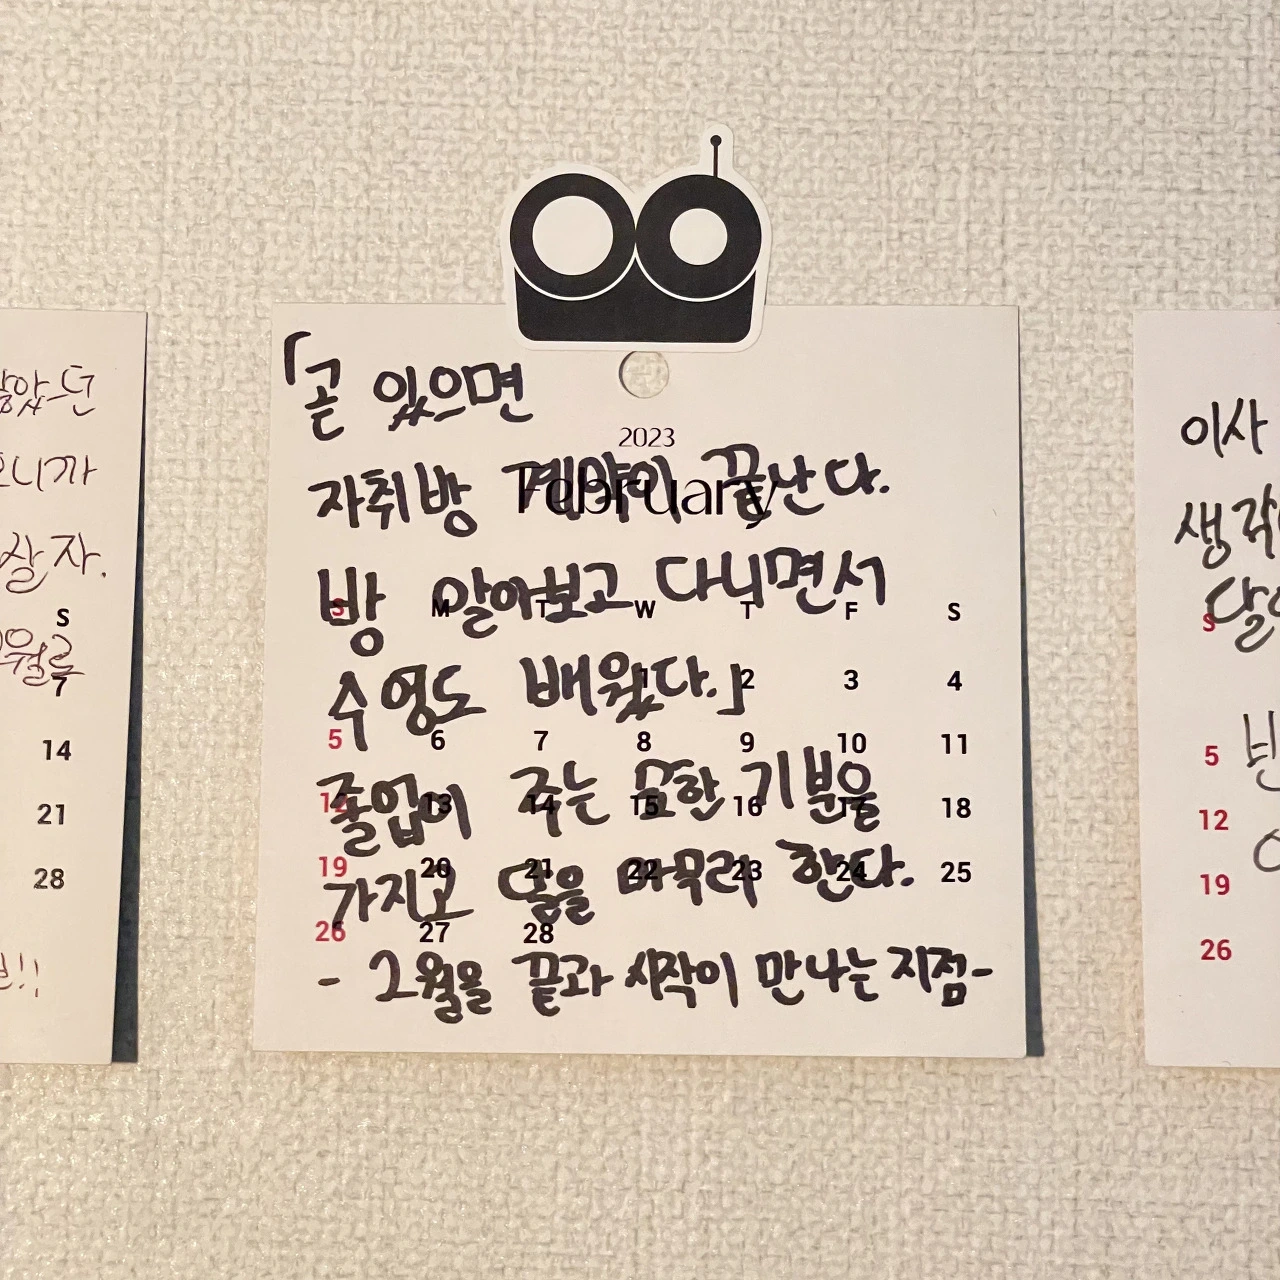 「곧 있으면
2023
February
자취방 계약이 끝난다.
방 알아보고 다니면서
S M T W T F S
수영도 배웠다.」
1 2 3 4
5 6 7 8 9 10 11
졸업이 주는 묘한 기분을
12 13 14 15 16 17 18
19 20 21 22 23 24 25
가지고 달을 마무리 한다.
26 27 28
- 2월을 끝과 시작이 만나는 지점-
살자.
S
7
14
21
28
이사
S
5
12
19
26